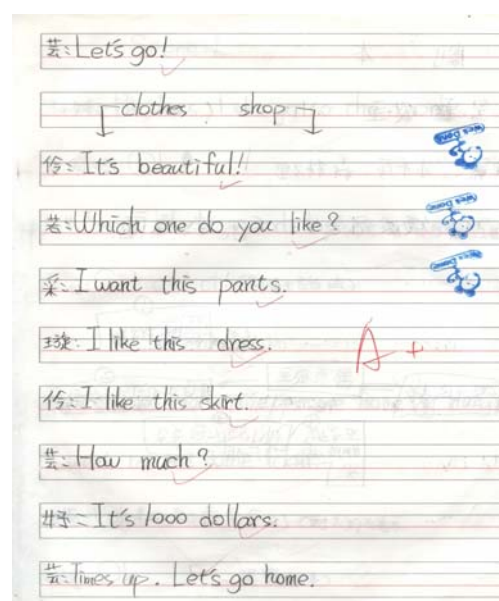 芸:Let's go!
clothes shop
伶:It's beautiful!
芸:Which one do you like?
采:I want this pants.
璇:I like this dress.
A+
伶:I like this skirt.
芸:How much?
好:It's 1000 dollars.
芸:Times up. Let's go home.